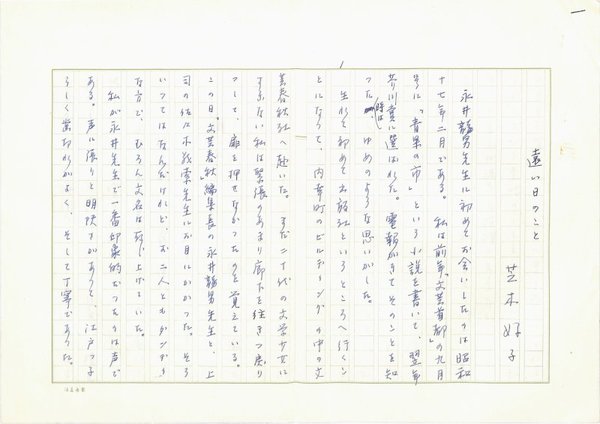 遠い日のこと
芝木好子
永井龍男先生に初めてお会いしたのは昭和
十七年二月である。私は前年「文芸首都」の九月
号に「青果の市」という小説を書いて、翌年
芥川賞に選ばれた。電報がきてそのことを知
った時は、ゆめのような思いがした。
生れて初めて出版社というところへ行くこ
とになって、内幸町のビルディングの中の文
芸春秋社へ赴いた。まだ二十代の文学少女に
すぎない私は緊張のあまり廊下を往きつ戻り
つして、扉を押せなかったのを覚えている。
この日、「文芸春秋」編集長の永井龍男先生と、上
司の佐佐木茂索先生にお目にかかった。そう
いってはなんだけれど、お二人ともダンディ
な方で、むろん文名は存じ上げていた。
私が永井先生で一番印象的だったのは声で
ある。声に張りと明快さがあって、江戸っ子
らしく歯切れがよく、そして丁寧であった。